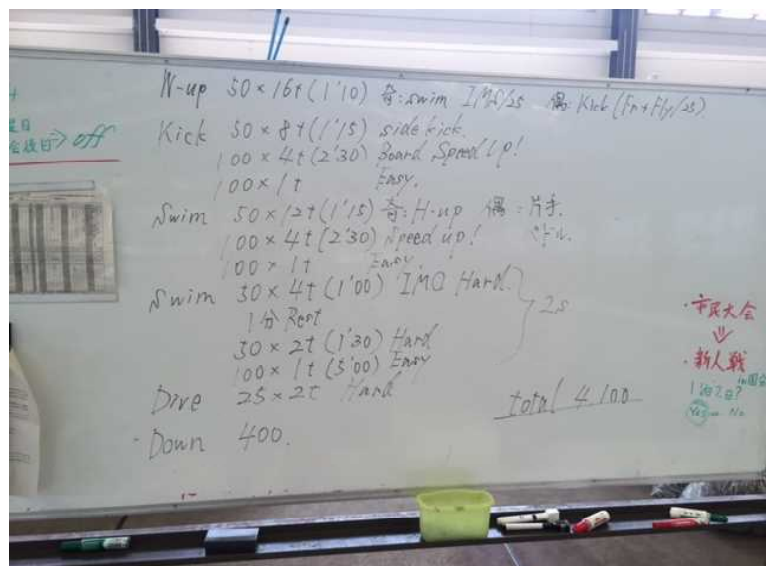 W-up 50×16t(1'10) 奇:swim IMO/25 偶:Kick(Fr+Fly/25)
Kick 50×8t(1'15) side kick.
100×4t(2'30) Board Speed Up!
100×1t Easy.
Swim 50×12t(1'15) 奇:H-up 偶:片手.
100×4t(2'30) Speed up!
100×1t Easy
Swim 50×4t(1'00) IMO Hard. } 2s
1分Rest
50×2t(1'30) Hard
100×1t(5'00) Easy
Dive 25×2t Hard
total 4,100
Down 400.
→off
・市民大会
⇓
・新人戦
1泊2日?
Yes or No